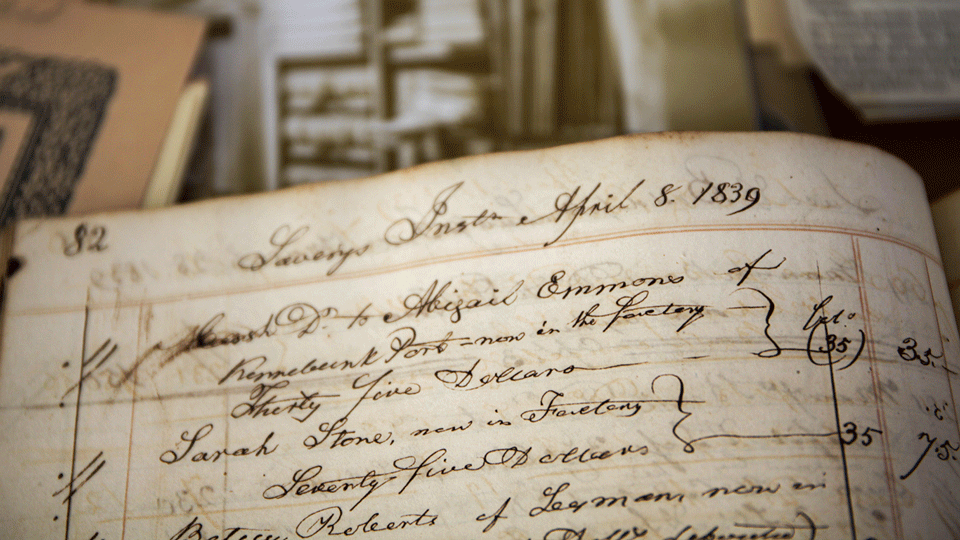 82
Savings Instn April 8. 1839
Cash Dr. to Abigail Emmons of
Kennebunk Port - now in the Factory
folo
(35) 35.
Thirty five Dollars
Sarah Stone, now in Factory
35 75.
Seventy five Dollars
Betsey Roberts of Lyman, now in
deposited)